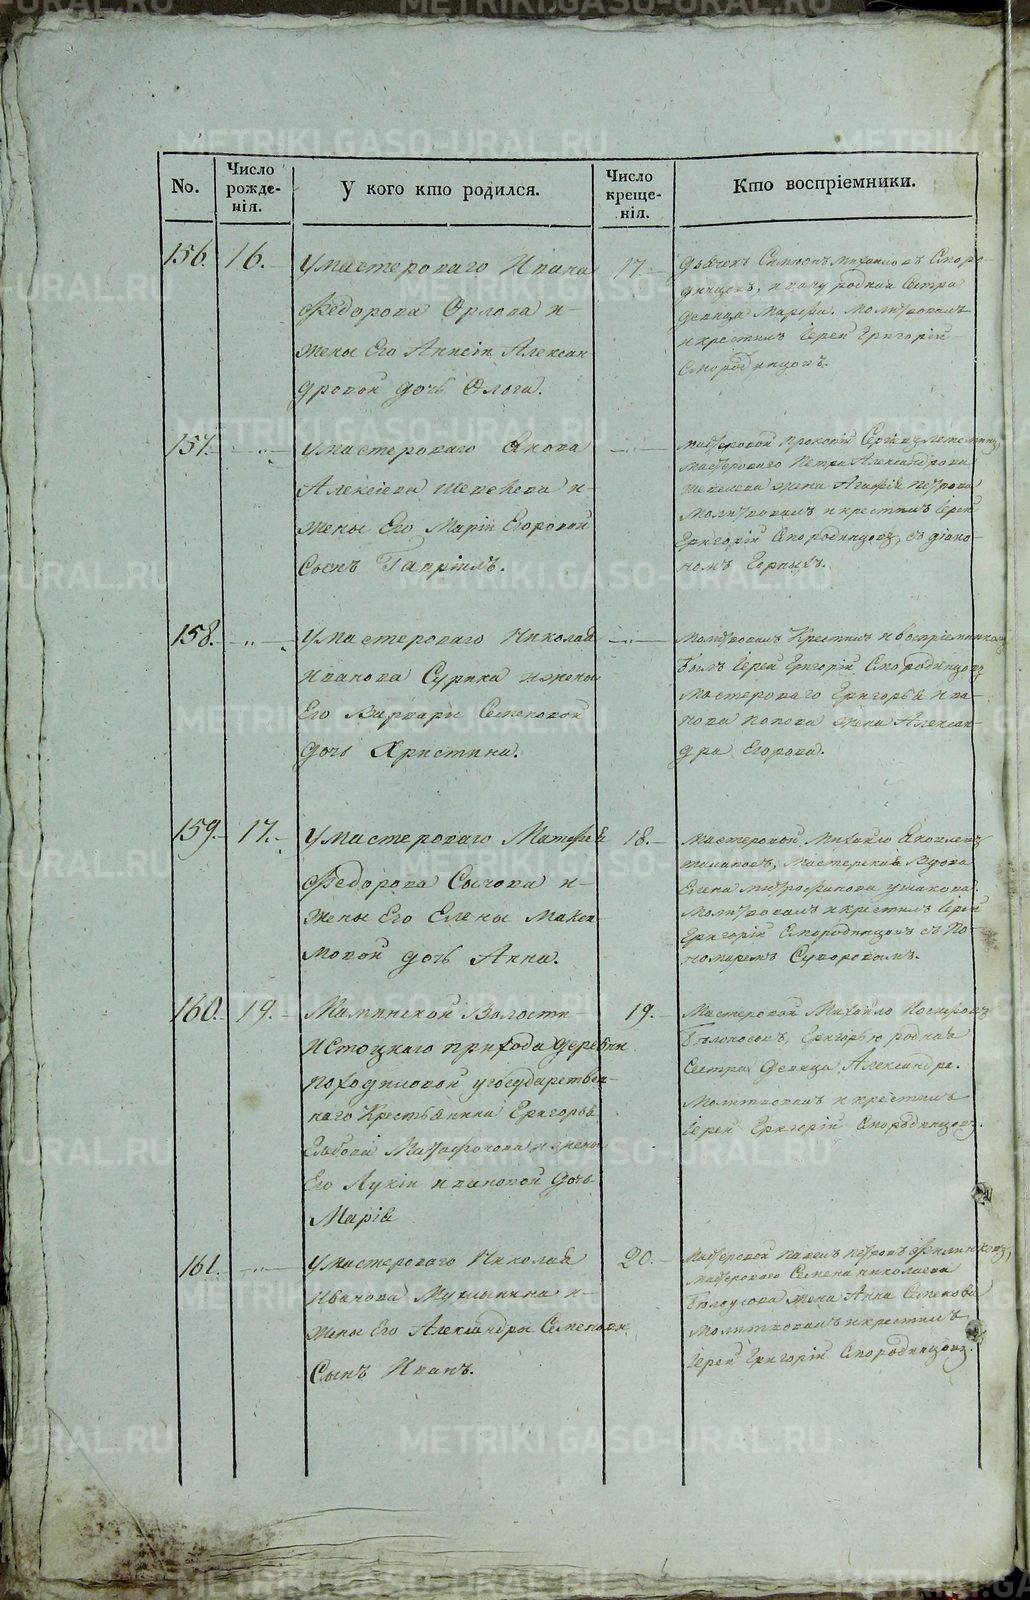 No.
Число рожде-нія.
У кого кто родился.
Число креще-нія.
Кто воспріемники.
156.
16.
У мастероваго Ивана
Федорова Орлова и
жены Его Анисіи Алексан
дровой дочь Олга.
17.
Дьячекъ Симионъ
динцовъ, родная Сестра
девица Марфа. Молитвовалъ
и крестилъ Іерей Григорій
Смородинцовъ.
157.
У мастероваго Якова
Алексіева Шевелева и
жены Его Маріи Егоровой
Сынъ Гавріилъ.
мастеровой Прокопій
мастероваго Петра Александрова
Шевелева жена Агафія Петрова
Молитвовалъ и крестилъ Іерей
Григорій Смородинцовъ, съ діако-
номъ
158.
У мастероваго Николая
Иванова Сурина и жены
Его Варвары Семеновой
дочь Христина.
Молитвовалъ Крестилъ и воспріемникомъ
былъ Іерей Григорій Смородинцовъ
мастероваго Григорья Ива-
нова Попова жена Александ-
дра Егорова.
159.
17.
У мастероваго Матфея
Федорова Сычова и
жены Его Елены Макси
мовой дочь Анна.
18.
Мастеровой Михайло Яковлевъ
Мастерская Вдова
Елена Митрофанова Ушакова.
Молитвовалъ и крестилъ Іерей
Григорій Смородинцовъ съ По-
номаремъ Суворовымъ.
160.
19.
Маминской Волости
Истоцкаго прихода деревни
Походиловой у государствен-
наго Крестьянина Григорья
Глебова и жены
Его Лукіи Ивановой дочь
Марія
19.
Мастеровой Михайло
Белоносовъ, Григорью родная
Сестра девица Александра.
Молитвовалъ и крестилъ
Іерей Григорій Смородинцовъ.
161.
У мастероваго Николая
Иванова и
жены Его Александры Семеновой
Сынъ Иванъ.
20.
Мастеровой Павелъ Петровъ
мастероваго Семена Николаева
Белоусова жена Анна Семенова
Молитвовалъ и крестилъ
Іерей Григорій Смородинцовъ.
METRIKI.GASO-URAL.RU